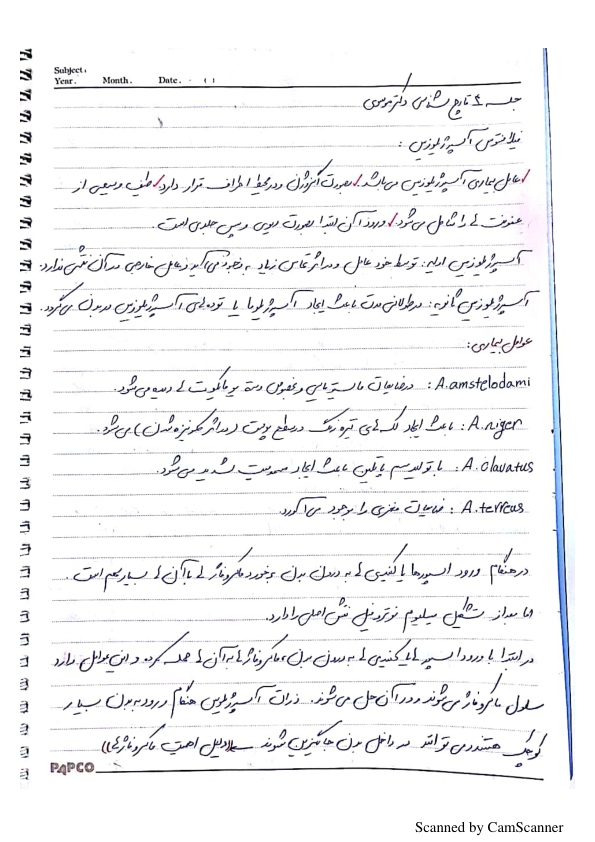 Subject:
Year. Month. Date. ( )
جلسه ٤ قارچ شناسی دکتر موسوی
فیلامنتوس آسپرژیلوزیس :
عامل بیماری آسپرژیلوزیس می باشد / بصورت اگزوژن و در محیط اطراف قرار دارد / طیف وسیعی از
عفونت ها را شامل می شود / ورود آن ابتدا بصورت ریوی و سپس جلدی است.
آسپرژیلوزیس اولیه : توسط خود عامل و در اثر تماس زیاد به وجود می آید و عامل خارجی در آن نقشی ندارد.
آسپرژیلوزیس ثانویه : در طولانی مدت باعث ایجاد آسپرژیلوما یا توده های آسپرژیلوزیس در بدن می گردد.
عوامل بیماری :
A.amstelodami : در ضایعات و بخصوص دسته دیده می شود.
A.niger : باعث ایجاد لکه های تیره رنگ در سطح پوست (در اثر کلونیزه شدن) می شود.
A.clavatus : با تولید سم پاتولین باعث ایجاد مسمومیت شدید می شود.
A.terreus : ضایعات مغزی را بوجود می آورد.
در هنگام ورود اسپورها یا کنیدی ها به درون بدن برخورد ماکروفاژ ها با آن ها بسیار مهم است .
اما بعد از تشکیل میسلیوم نوتروفیل نقش اصلی را دارد.
در ابتدا با ورود اسپور ها یا کنیدی ها به درون بدن ، ماکروفاژها به آن ها حمله کرده و این عوامل وارد
سلول ماکروفاژ می شوند و در آن حل می شوند. ذرات آسپرژیلوس هنگام ورود به بدن بسیار
کوچک هستند و می توانند در داخل بدن جایگزین شوند ((دلیل اهمیت ماکروفاژها))
PAPCO
Scanned by CamScanner